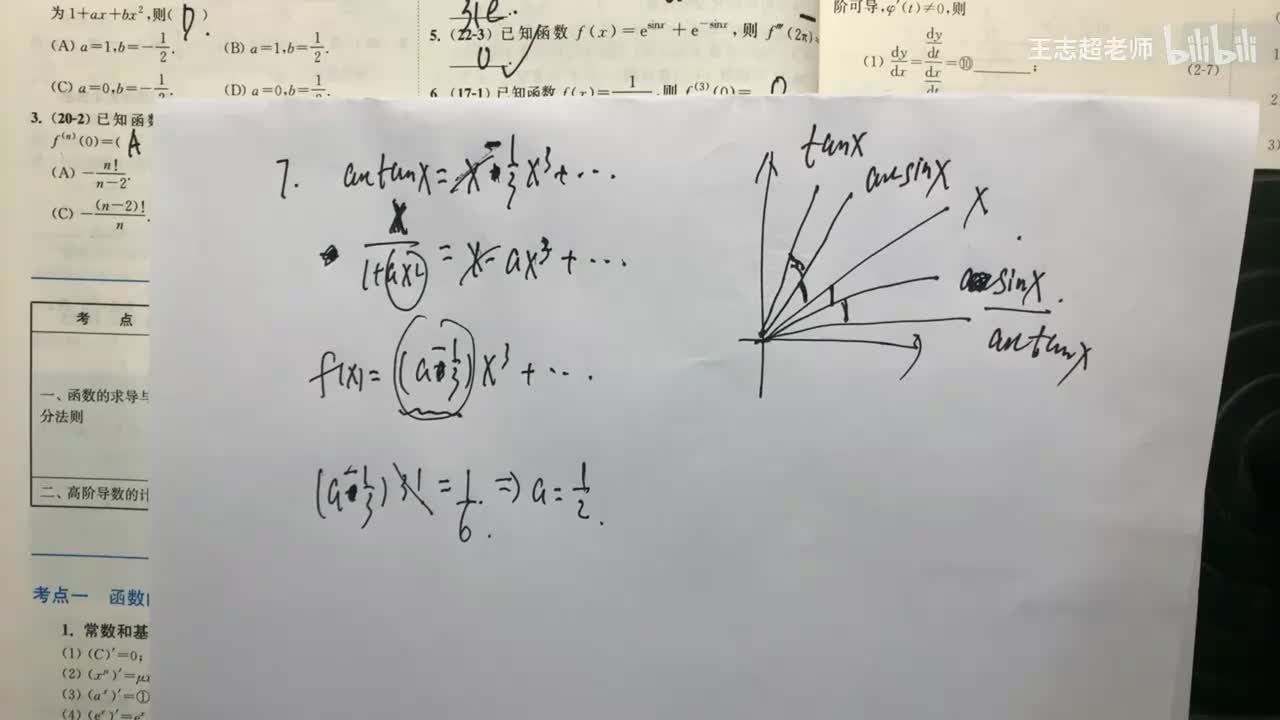 为1+ax+bx²,则( D )
(A) a=1,b=-1/2.
(B) a=1,b=1/2.
(C) a=0,b=-1/2.
(D) a=0,b=1/2.
3. (20-2) 已知函数
f⁽ⁿ⁾(0)=( A
(A) -n!/(n-2).
(C) -(n-2)!/n.
考 点
一、函数的求导与
分法则
二、高阶导数的计
考点一 函数
1. 常数和基
(1) (C)′=0;
(2) (xᵘ)′=μx
(3) (aˣ)′=①
(4) (eˣ)′=eˣ
5. (22-3) 已知函数 f(x)=e^{sinx}+e^{-sinx},则 f‴(2π)=
0 ✓
6. (17-1) 已知函数 f(x)=1 ,则 f⁽³⁾(0)= 0
阶可导,φ′(t)≠0,则
(1) dy/dx=(dy/dt)/(dx/dt)=⑩ ;
(2-7)
王志超老师 bilibili
7. arctanx=x-1/3x³+…
x/(1+ax²)=x-ax³+…
f(x)=(a-1/3)x³+…
(a-1/3)3!=1/6 ⇒ a=1/2.
tanx
arcsinx
x
sinx
arctanx